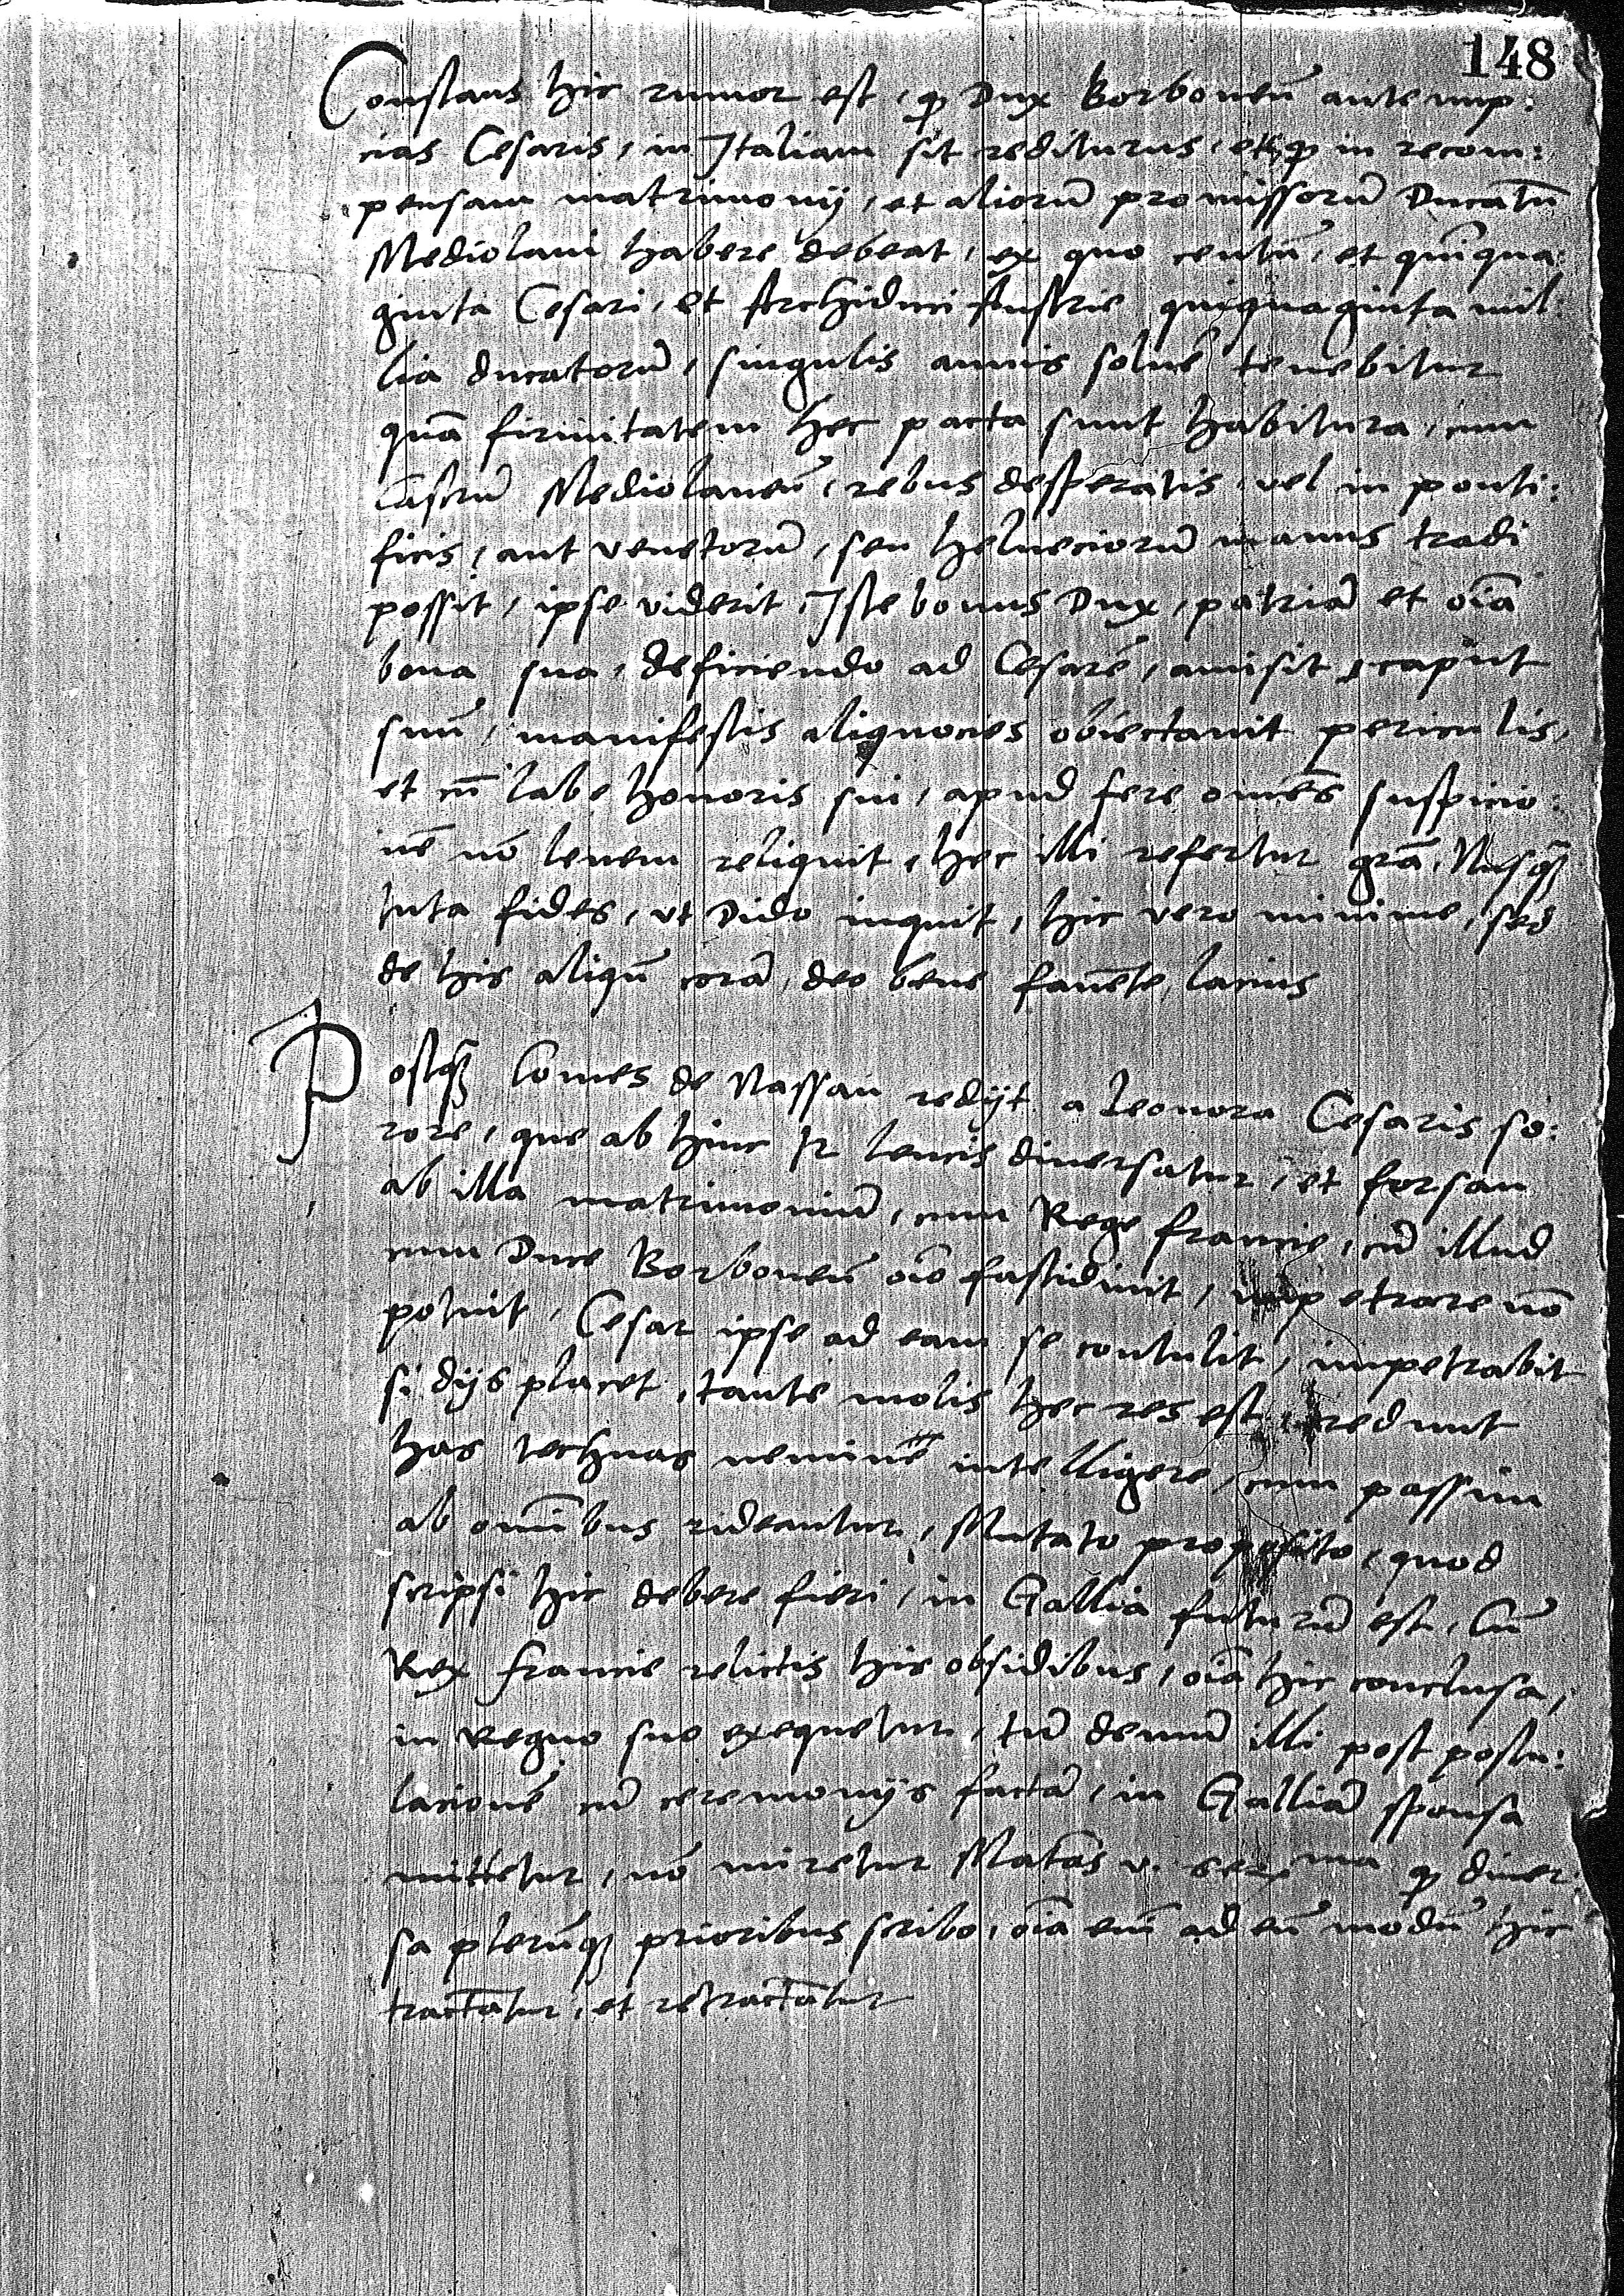 148
Constans hic rumor est, ꝙ Dux Borboneñ ante nup:
cias Cesaris, in Italiam sit rediturus, et ꝙ in recom:
pensam matrimonij, et aliorū promissorū Ducatū
Mediolani habere debeat, ex quo centū, et quīqua:
ginta Cesari, et Archiduci Austrie quiquaginta mil:
lia ducatorū, singulis annis solue͂ tenebitur
quā firmitatem hec pacta sunt habitura, cum
Castrū Mediolaneñ, rebus desperatis, vel in ponti:
ficis, aut venetorū, seu helueciorū manus tradi
possit, ipse viderit, Iste bonus Dux, patriā et oīa
bona sua, deficiendo ad Cesarē, amisit, caput
suū, manifestis aliquocies obiectauit periculis,
et cū labe honoris sui, apud fere omēs suspicio:
nē nō leuem reliquit, hec illi refertur grā, Nusꝙ̄
tuta fides, vt Dido inquit, hic vero minime, sed
de his aliqn̄ corā, deo bene fauēte, lacius
Postꝙ̄ Comes de Nassau redijt a Leonora Cesaris so:
rore, que ab hinc leucis diuersatur, et forsan
ab illa matrimoniū, cum Rege francie, cū illud
cum Duce Borboneñ oīo fastidiuit, impetrare nō
potuit, Cesar ipse ad eam se contulit, impetrabit
si dijs placet, tante molis hec res est, credunt
has technas neminē intelligere, cum passim
ab omībus rideantur, Mutato proposito, quod
scripsi hic debere fieri, in Gallia futurū est, Cū
Rex francie relictis hic obsidibus, oīa hic conclusa,
in Regno suo exequetur, tū demū illi post postu:
lacionē cū ceremonijs factā, in Galliā sponsa
mittetur, nō miretur Matās v. serma ꝙ diuer:
sa plerūqꝫ prioribus scribo, oīa eñi ad eū modū hic
tractātur, et retractātur